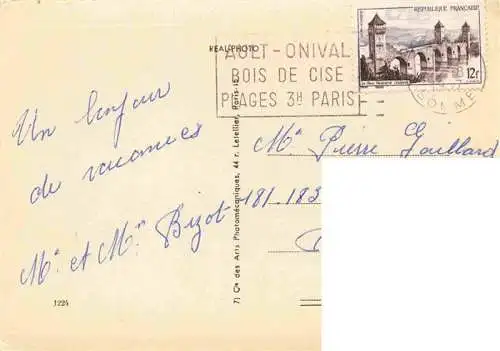 REAL-PHOTO
AULT-ONIVAL
BOIS DE CISE
PLAGES 3H PARIS
REPUBLIQUE FRANÇAISE
12f
SOMME
Un bonjour
de vacances
Me et Mr Bizot
Mr Pierre Gaillard
181.183
7) Cie des Arts Photomécaniques, 44 r. Letellier, Paris-15
1224